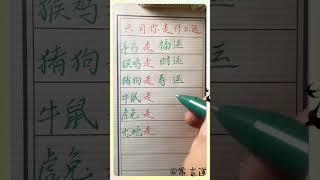 六月你走什么运
羊马走福运
猴鸡走财运
猪狗走寿运
牛鼠走
虎兔走
龙蛇走
猴鸡
猪狗
牛鼠
虎兔